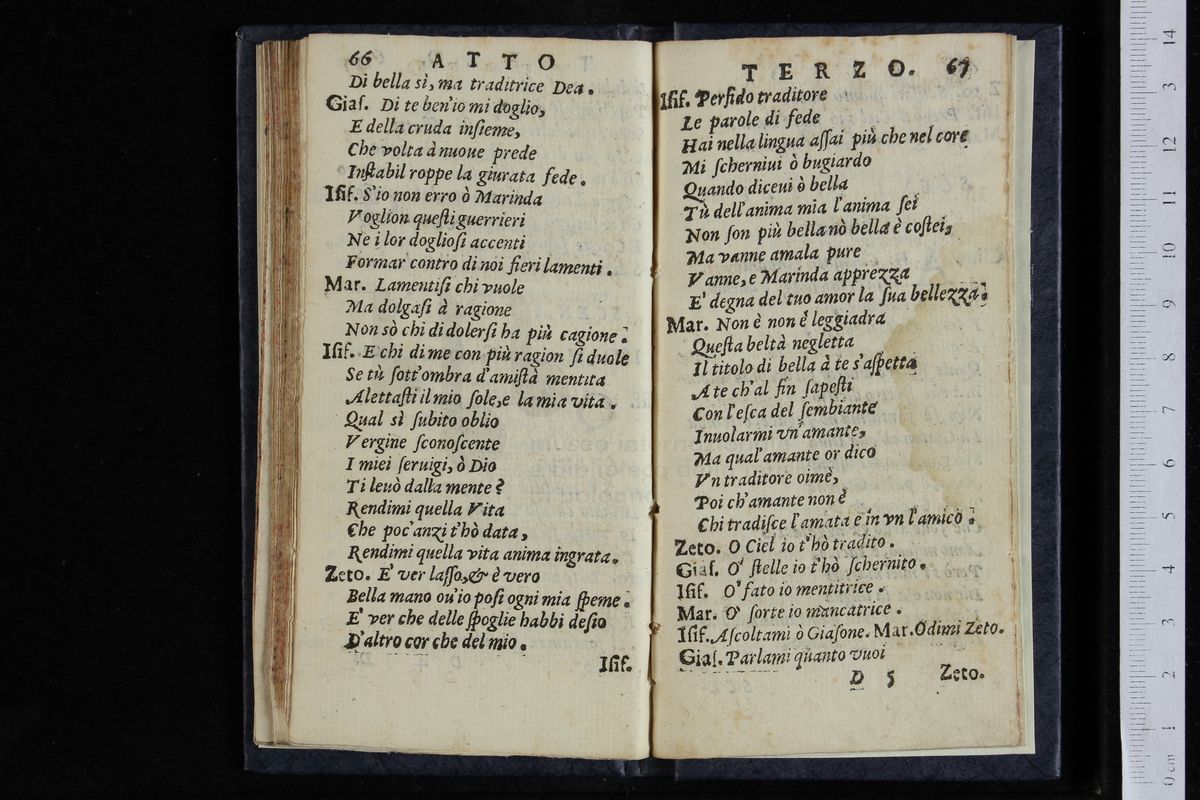 66 ATTO
Di bella sì, ma traditrice Dea.
Giaſ. Di te ben'io mi doglio,
E della cruda inſieme,
Che volta à nuoue prede
Inſtabil roppe la giurata fede.
Iſif. S'io non erro ò Marinda
Voglion queſti guerrieri
Ne i lor doglioſi accenti
Formar contro di noi fieri lamenti.
Mar. Lamentiſi chi vuole
Ma dolgaſi à ragione
Non sò chi di dolerſi ha più cagione.
Iſif. E chi di me con più ragion ſi duole
Se tù ſott'ombra d'amiſtà mentita
Alettaſti il mio ſole, e la mia vita.
Qual sì ſubito oblio
Vergine ſconoſcente
I miei ſeruigi, ò Dio
Ti leuò dalla mente?
Rendimi quella Vita
Che poc'anzi t'hò data,
Rendimi quella vita anima ingrata.
Zeto. E' ver laſſo, & è vero
Bella mano ou'io poſi ogni mia ſpeme.
E' ver che delle ſpoglie habbi deſio
D'altro cor che del mio.
Iſif.
TERZO. 67
Iſif. Perfido traditore
Le parole di fede
Hai nella lingua aſſai più che nel core
Mi ſcherniui ò bugiardo
Quando diceui ò bella
Tù dell'anima mia l'anima ſei
Non ſon più bella nò bella è coſtei,
Ma vanne amala pure
Vanne, e Marinda apprezza
E' degna del tuo amor la ſua bellezza.
Mar. Non è non è leggiadra
Queſta beltà negletta
Il titolo di bella à te s'aſpetta
A te ch'al fin ſapeſti
Con l'eſca del ſembiante
Inuolarmi vn'amante,
Ma qual'amante or dico
Vn traditore oimè,
Poi ch'amante non è
Chi tradiſce l'amata e in vn l'amico.
Zeto. O Ciel io t'hò tradito.
Giaſ. O' ſtelle io t'hò ſchernito.
Iſif. O' fato io mentitrice.
Mar. O' ſorte io mancatrice.
Iſif. Aſcoltami ò Giaſone. Mar. Odimi Zeto.
Giaſ. Parlami quanto vuoi
D 5 Zeto.
0 cm 1 2 3 4 5 6 7 8 9 10 11 12 13 14